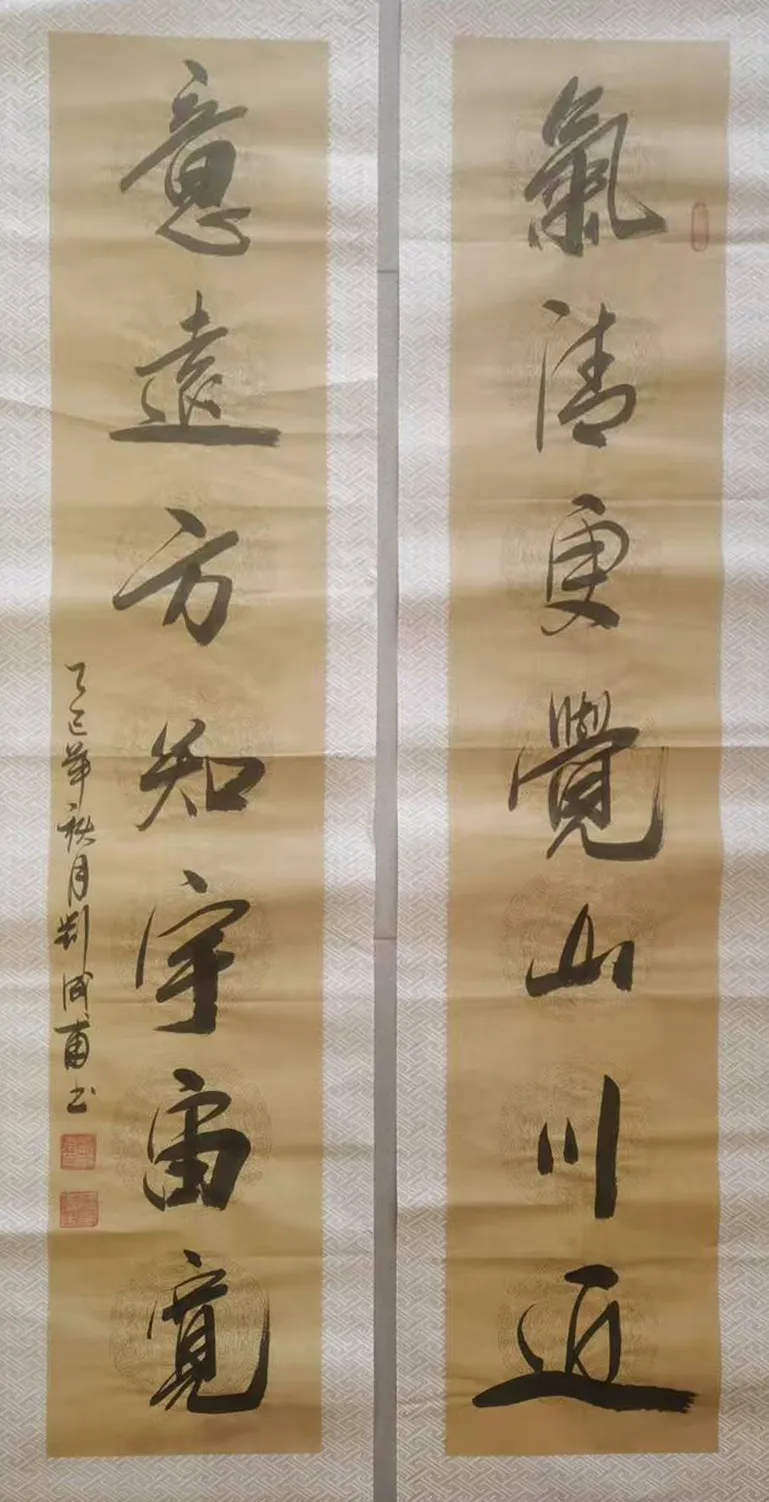 氣清更覺山川近
意遠方知宇宙寬
乙巳年秋月劉成甫书